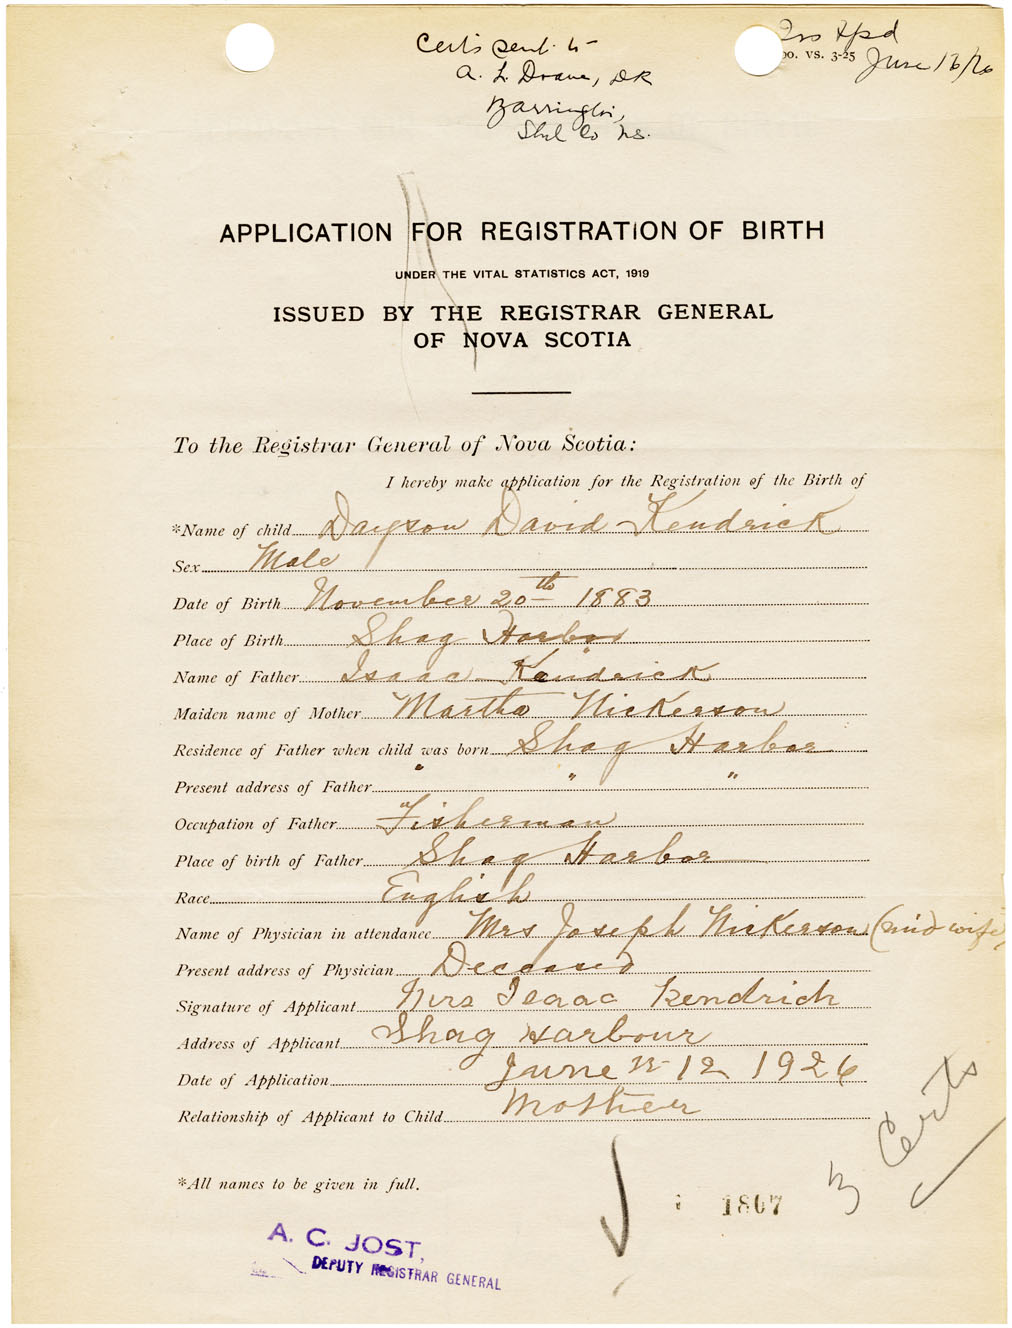 Certs sent to
A. L. Drane, DR
Barrington,
Shel Co NS.
00. VS. 3-25
June 16/26
APPLICATION FOR REGISTRATION OF BIRTH
UNDER THE VITAL STATISTICS ACT, 1919
ISSUED BY THE REGISTRAR GENERAL
OF NOVA SCOTIA
To the Registrar General of Nova Scotia:
I hereby make application for the Registration of the Birth of
*Name of child Dayson David Kendrick
Sex Male
Date of Birth November 20th 1883
Place of Birth Shag Harbor
Name of Father Isaac Kendrick
Maiden name of Mother Martha Nickerson
Residence of Father when child was born Shag Harbor
Present address of Father " " "
Occupation of Father Fisherman
Place of birth of Father Shag Harbor
Race English
Name of Physician in attendance Mrs Joseph Nickerson (mid wife)
Present address of Physician Deceased
Signature of Applicant Mrs Isaac Kendrick
Address of Applicant Shag Harbour
Date of Application June 12 1926
Relationship of Applicant to Child Mother
3 Certs
*All names to be given in full.
1807
A. C. JOST,
DEPUTY REGISTRAR GENERAL